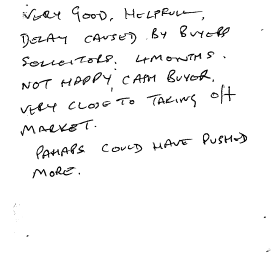 VERY GOOD, HELPFULL,
DELAY CAUSED BY BUYERS
SOLLICITORS. 4 MONTHS.
NOT HAPPY, CASH BUYER,
VERY CLOSE TO TAKING OFF
MARKET.
PAHAPS COULD HAVE PUSHED
MORE.